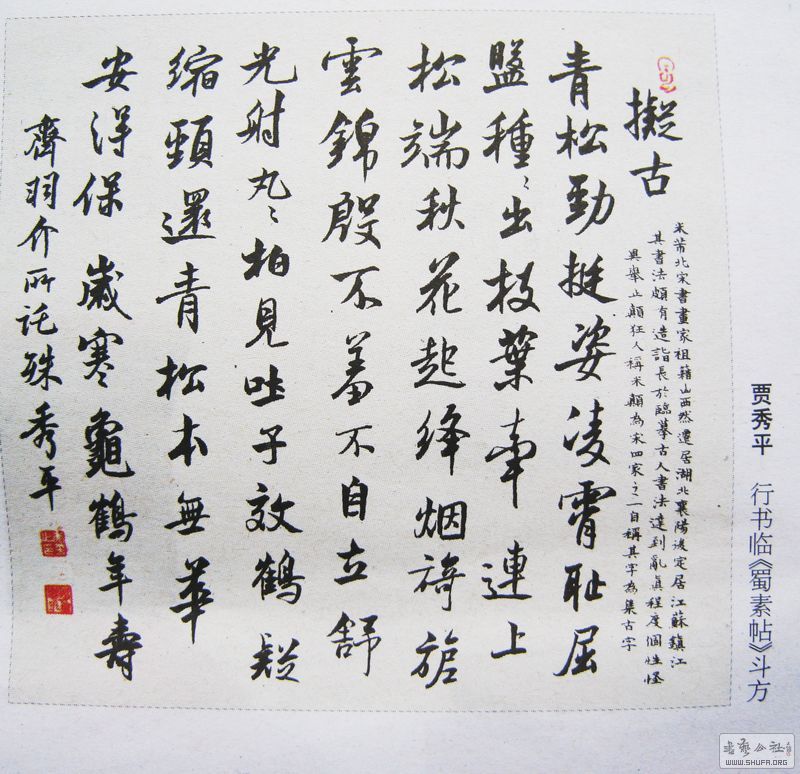 擬古
米芾北宋書畫家祖籍山西然遷居湖北襄陽後定居江蘇鎮江
其書法頗有造詣長於臨摹古人書法達到亂真程度個性怪
異舉止顛狂人稱米顛為宋四家之一自稱其字為集古字
青松勁挺姿凌霄耻屈
盤種〻出枝葉牽連上
松端秋花起絳烟旖旎
雲錦殷不羞不自立舒
光射丸〻柏見吐子效鶴疑
縮頸還青松本無華
安得保歲寒龜鶴年壽
齊羽介所託殊秀平
贾秀平 行书临《蜀素帖》斗方
書藝公社
WWW.SHUFA.ORG